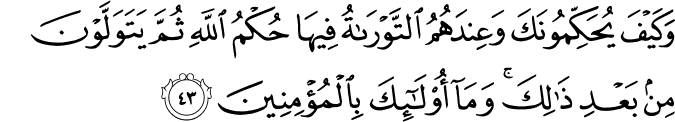 وَكَيْفَ يُحَكِّمُونَكَ وَعِندَهُمُ ٱلتَّوْرَىٰةُ فِيهَا حُكْمُ ٱللَّهِ ثُمَّ يَتَوَلَّوْنَ
مِنۢ بَعْدِ ذَٰلِكَ ۚ وَمَآ أُو۟لَـٰٓئِكَ بِٱلْمُؤْمِنِينَ ٤٣